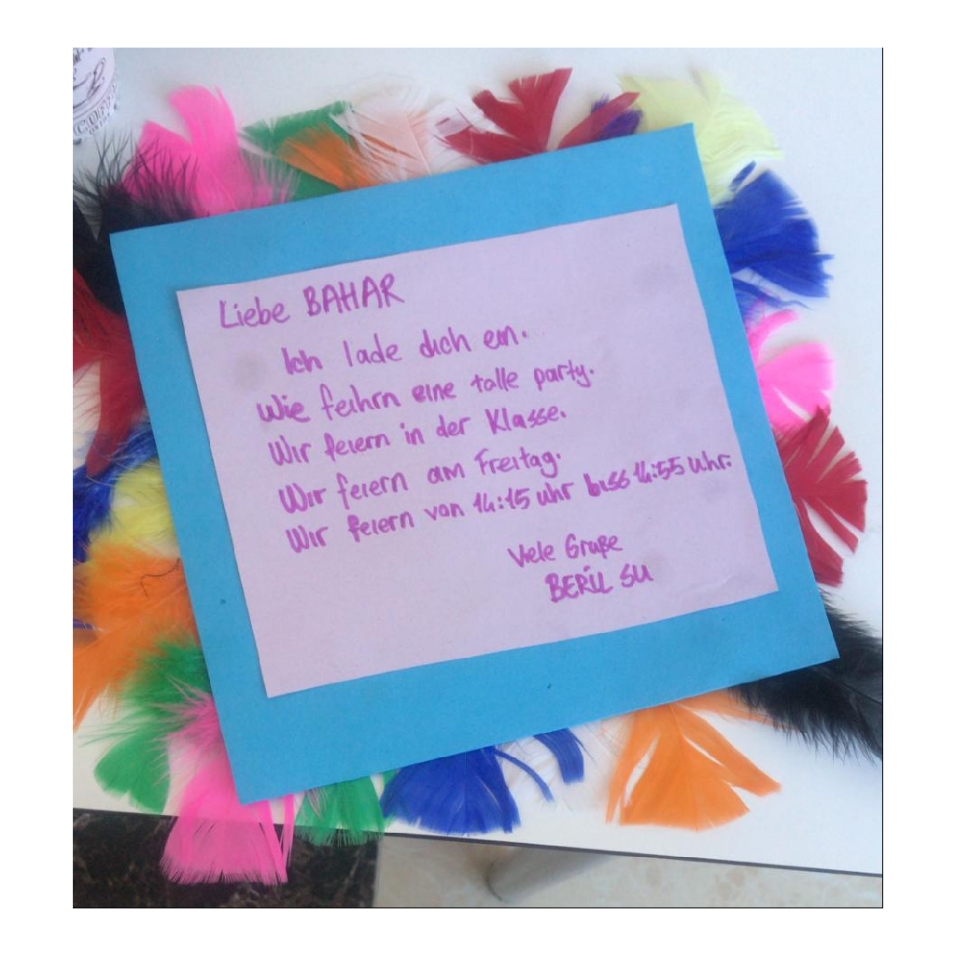 Liebe BAHAR
Ich lade dich ein.
Wie feihrn eine talle party.
Wir feiern in der Klasse.
Wir feiern am Freitag.
Wir feiern von 14:15 Uhr biss 14:55 Uhr.
Viele Graße
BERİL SU